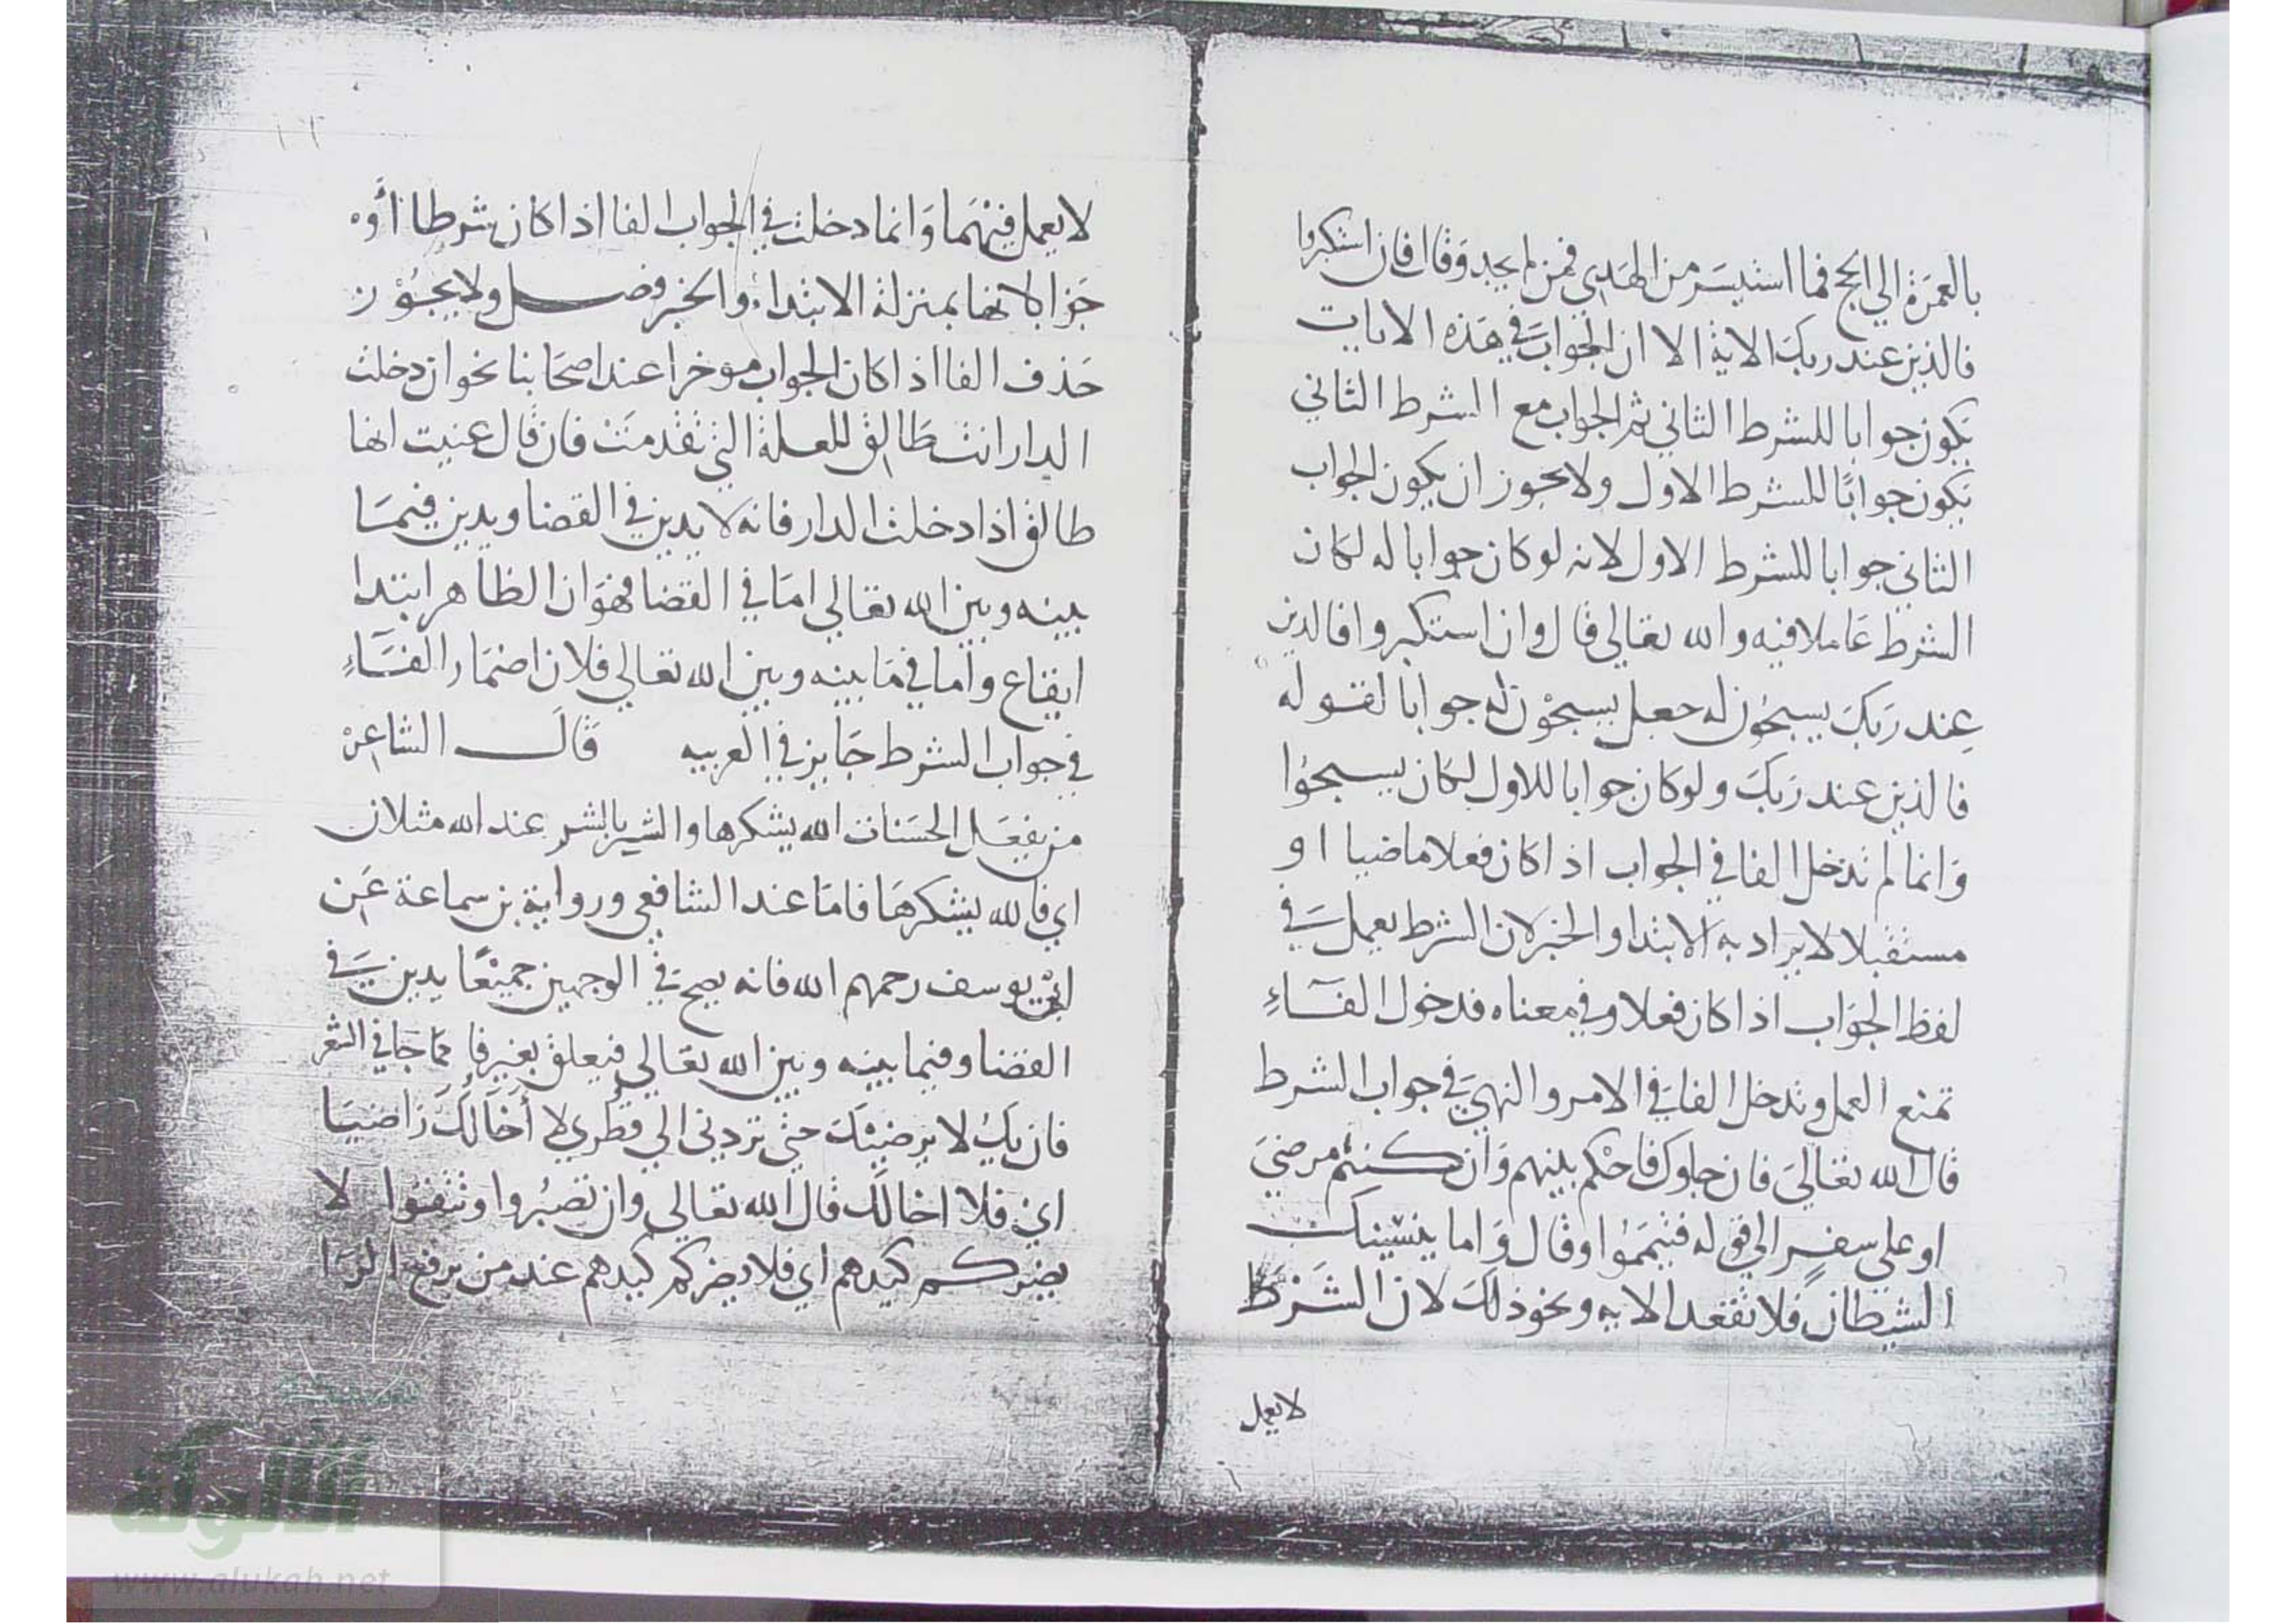 بالعمرة الي الحج فما استيسر من الهدي فمن لم يجد وقال فان استكبروا
فالذين عند ربك الاية الا ان الجواب في هذه الايات
يكون جوابا للشرط الثاني ثم الجواب مع الشرط الثاني
يكون جوابا للشرط الاول ولا يجوز ان يكون الجواب
الثاني جوابا للشرط الاول لانه لو كان جوابا له لكان
الشرط عاملا فيه والله تعالي قال وان استكبروا فالذين
عند ربك يسبحون له جعل يسبحون له جوابا لقوله
فالذين عند ربك ولو كان جوابا للاول لكان يسبحوا
وانما لم تدخل الفا في الجواب اذا كان فعلا ماضيا او
مستقبلا لا يراد به الابتدا والخبر لان الشرط يعمل في
لفظ الجواب اذا كان فعلا وفي معناه فدخول الفاء
تمنع العمل وتدخل الفا في الامر والنهي في جواب الشرط
قال الله تعالي فان جاوك فاحكم بينهم وان كنتم مرضي
او علي سفر الي قوله فتيمموا وقال واما ينسينك
الشيطان فلا تقعد الايه ونحو ذلك لان الشرط
لا يعمل
لا يعمل فيهما وانما دخلت في الجواب الفا اذا كان شرطا او
جوابا لانها بمنزلة الابتداء والخبر فصل ولا يجوز
حذف الفا اذا كان الجواب موخرا عند اصحابنا نحو ان دخلت
الدار انت طالق للعلة التي تقدمت فان قال عنيت انها
طالق اذا دخلت الدار فانه لا يدين في القضا ويدين فيما
بينه وبين الله تعالي اما في القضا فهو ان الظاهر ابتدا
ايقاع واما في ما بينه وبين الله تعالي فلان اضمار الفاء
في جواب الشرط جايز في العربيه قال الشاعر
من يفعل الحسنات الله يشكرها والشر بالشر عند الله مثلان
اي فالله يشكرها فاما عند الشافعي ورواية بن سماعة عن
ابي يوسف رحمهم الله فانه يصح في الوجهين جميعا يدين في
القضا وفيما بينه وبين الله تعالي فيعلق بغير فا كما جا في الشعر
فان يك لا يرضيك حتي تردني الي قطري لا أخالك راضيا
اي فلا اخالك قال الله تعالي وان تصبروا وتتقوا لا
يضركم كيدهم اي فلا يضركم كيدهم عند من يرفع الرا
www.alukah.net